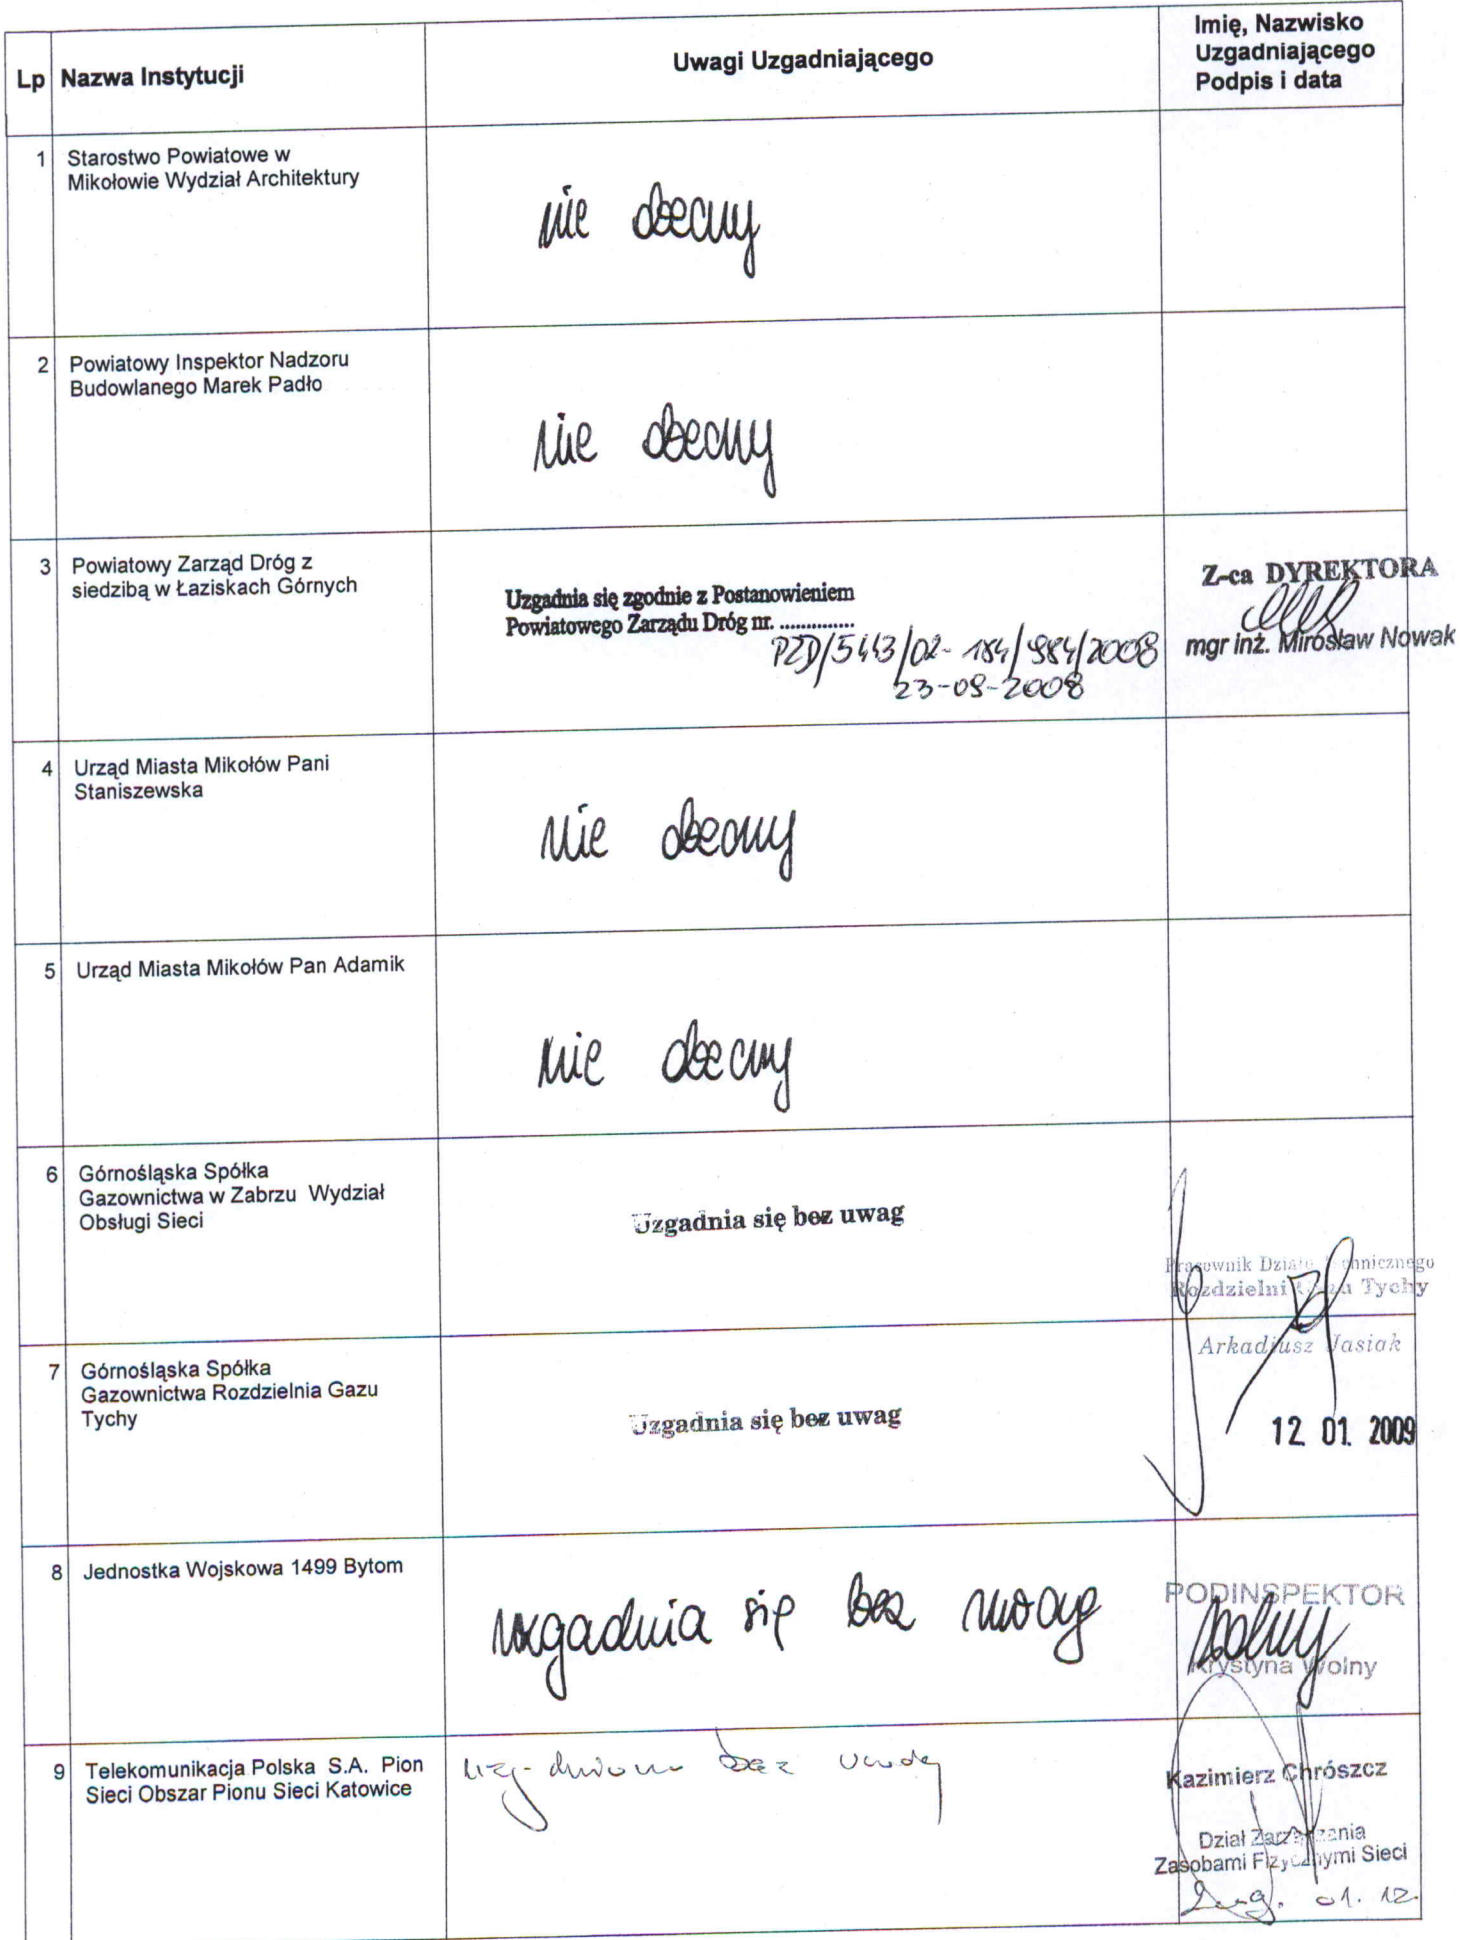 Lp Nazwa Instytucji Uwagi Uzgadniającego Imię, Nazwisko
Uzgadniającego
Podpis i data
1 Starostwo Powiatowe w
Mikołowie Wydział Architektury
nie obecny
2 Powiatowy Inspektor Nadzoru
Budowlanego Marek Padło
nie obecny
3 Powiatowy Zarząd Dróg z
siedzibą w Łaziskach Górnych
Uzgadnia się zgodnie z Postanowieniem
Powiatowego Zarządu Dróg nr. ..............
PZD/5443/02-184/984/2008
23-09-2008
Z-ca DYREKTORA
mgr inż. Mirosław Nowak
4 Urząd Miasta Mikołów Pani
Staniszewska
nie obecny
5 Urząd Miasta Mikołów Pan Adamik
nie obecny
6 Górnośląska Spółka
Gazownictwa w Zabrzu Wydział
Obsługi Sieci
Uzgadnia się bez uwag
Pracownik Działu Technicznego
Rozdzielni Gazu Tychy
Arkadiusz Jasiak
7 Górnośląska Spółka
Gazownictwa Rozdzielnia Gazu
Tychy
Uzgadnia się bez uwag
12. 01. 2009
8 Jednostka Wojskowa 1499 Bytom
uzgadnia się bez uwag
PODINSPEKTOR
Wolny
Krystyna Wolny
9 Telekomunikacja Polska S.A. Pion
Sieci Obszar Pionu Sieci Katowice
uzgodniono bez uwag
Kazimierz Chrószcz
Dział Zarządzania
Zasobami Fizycznymi Sieci
01. 12